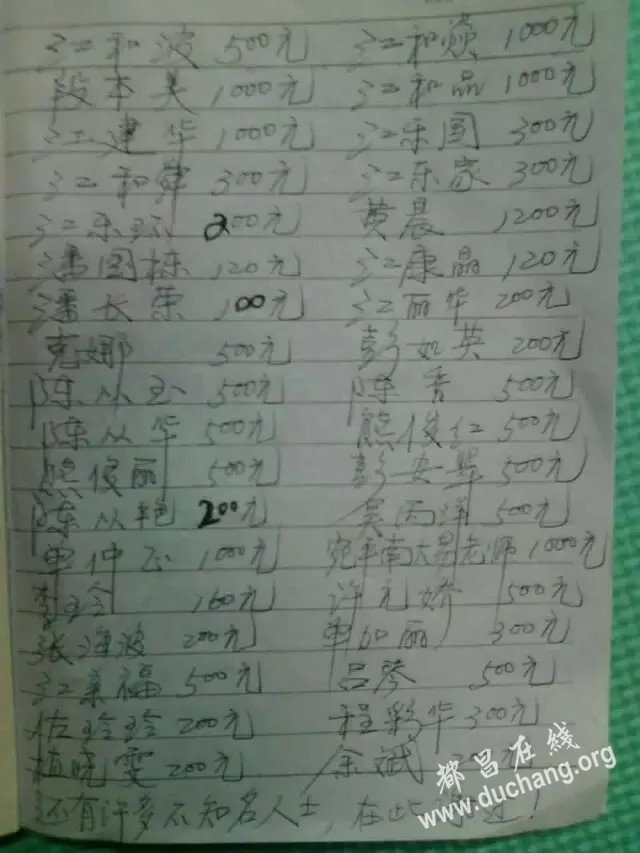 江和波 500元 江和焱 1000元
段本昊 1000元 江和晶 1000元
江建华 1000元 江乐园 300元
江和 300元 江乐家 300元
江乐 200元 黄晨 1200元
潘国栋 120元 江康晶 120元
潘长荣 100元 江丽华 200元
克娜 500元 彭如英 200元
陈从玉 500元 陈香 500元
陈从华 500元 熊俊红 500元
熊俊丽 500元 彭 500元
陈从艳 200元 吴丙洋 500元
单仲玉 1000元 南大 老师 1000元
160元 许元娇 500元
张海波 200元 单加丽 300元
江来福 500元 吕琴 500元
伍玲玲 200元 程彩华 300元
植晓雯 200元 余斌 元
还有许多不知名人士,在此 !
都昌在线
www.duchang.org